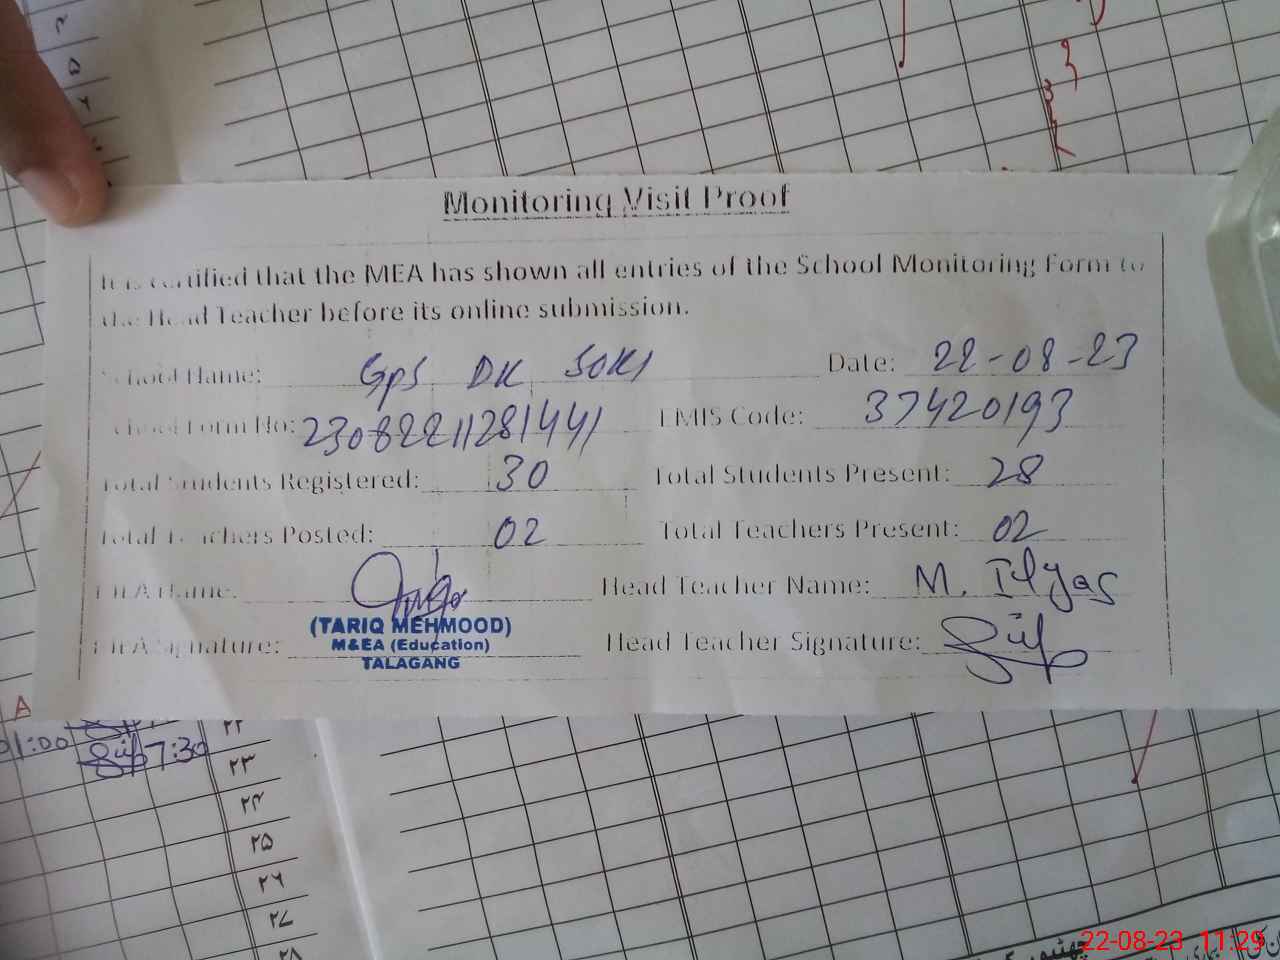 Monitoring Visit Proof
It is certified that the MEA has shown all entries of the School Monitoring Form to
the Head Teacher before its online submission.
School Name: GPS DK SOKI Date: 22-08-23
School Form No: 23082211281441 EMIS Code: 37420193
Total Students Registered: 30 Total Students Present: 28
Total Teachers Posted: 02 Total Teachers Present: 02
MEA Name: Head Teacher Name: M. Ilyas
(TARIQ MEHMOOD)
MEA Signature: M&EA (Education) Head Teacher Signature:
TALAGANG
A
01:00 7:30
۲۲
۲۳
۲۴
۲۵
۲۶
۲۷
۲۸
22-08-23 11:29